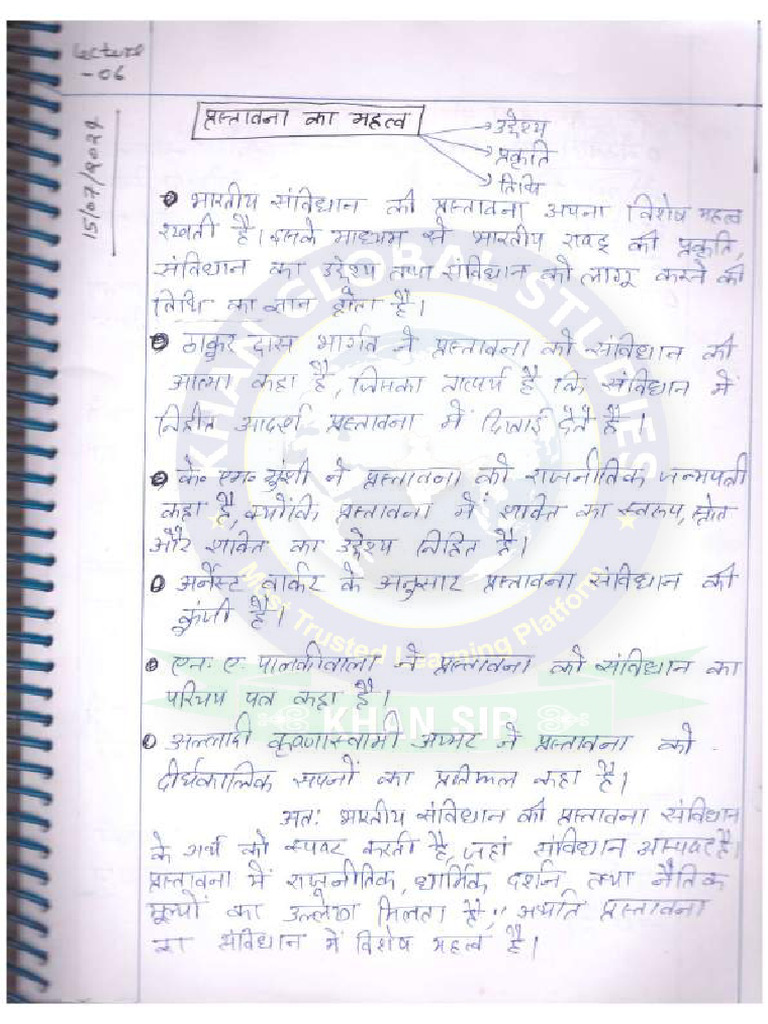 Lecture
-06
15/07/2024
प्रस्तावना का महत्व
उद्देश्य
प्रकृति
तिथि
भारतीय संविधान की प्रस्तावना अपना विशेष महत्व
रखती है। इसके माध्यम से भारतीय राष्ट्र की प्रकृति,
संविधान का उद्देश्य तथा संविधान को लागू करने की
तिथि का ज्ञान होता है।
ठाकुर दास भार्गव ने प्रस्तावना को संविधान की
आत्मा कहा है, जिसका तात्पर्य है कि संविधान में
निहीत आदर्श प्रस्तावना में दिखाई देते है।
के० एम० मुंशी ने प्रस्तावना को राजनीतिक जन्मपत्री
कहा है, क्योंकि प्रस्तावना में शक्ति का स्वरूप, स्रोत
और शक्ति का उद्देश्य निहित है।
अर्नेस्ट बार्कर के अनुसार प्रस्तावना संविधान की
कुंजी है।
एन. ए. पालकीवाला ने प्रस्तावना को संविधान का
परिचय पत्र कहा है।
अल्लादी कृष्णास्वामी अय्यर ने प्रस्तावना को
दीर्घकालिक सपनों का प्रतिफल कहा है।
अत: भारतीय संविधान की प्रस्तावना संविधान
के अर्थ को स्पष्ट करती है, जहां संविधान अस्पष्ट है।
प्रस्तावना में राजनीतिक, धार्मिक दर्शन तथा नैतिक
मूल्यों का उल्लेख मिलता है," अर्थात प्रस्तावना
का संविधान में विशेष महत्व है।
KHAN GLOBAL STUDIES
Most Trusted Learning Platform
KHAN SIR